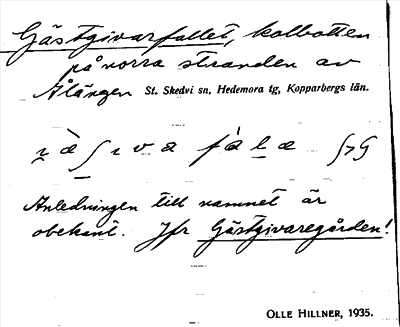 Gästgivarfallet, kolbotten
på norra stranden av
Ålängen St. Skedvi sn, Hedemora tg, Kopparbergs län.
Anledningen till namnet är
obekant. Jfr Gästgivaregården!
OLLE HILLNER, 1935.